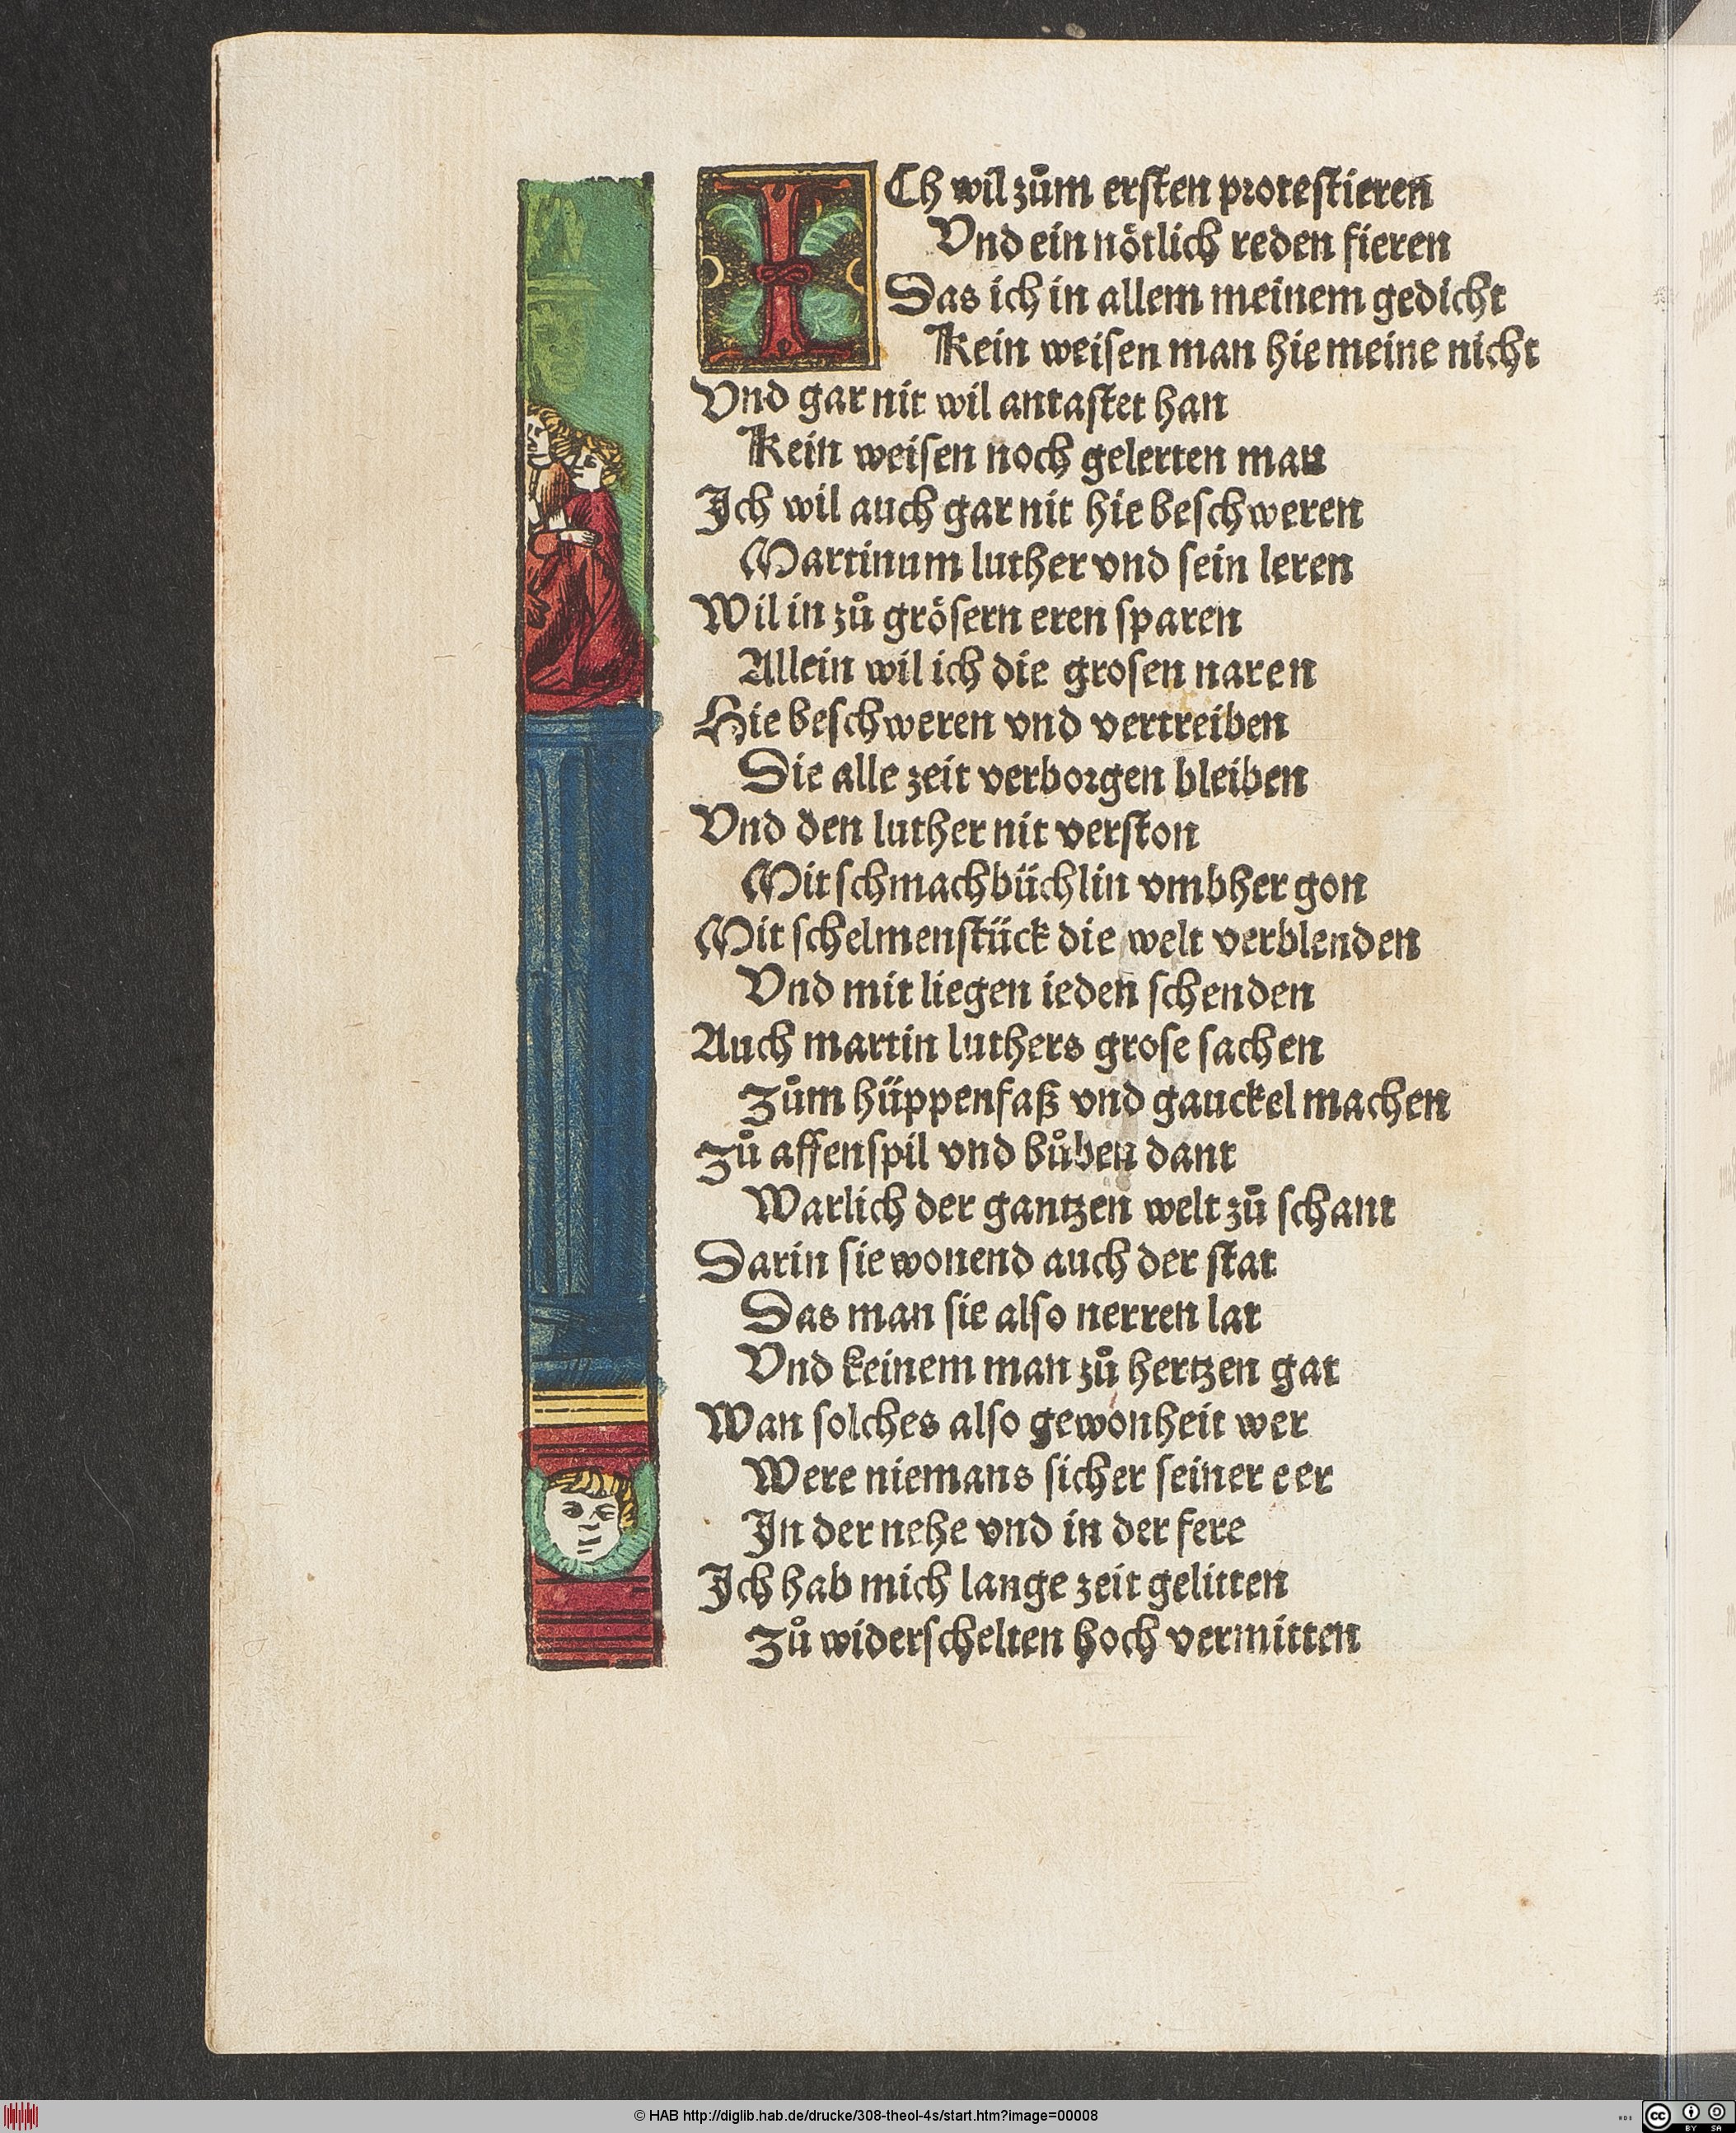 ICh wil zům ersten protestieren
Vnd ein nötlich reden fieren
Das ich in allem meinem gedicht
Kein weisen man hie meine nicht
Vnd gar nit wil antastet han
Kein weisen noch gelerten man
Ich wil auch gar nit hie beschweren
Martinum luther vnd sein leren
Wil in zů grösern eren sparen
Allein wil ich die grosen naren
Hie beschweren vnd vertreiben
Die alle zeit verborgen bleiben
Vnd den luther nit verston
Mit schmachbüchlin vmbher gon
Mit schelmenstück die welt verblenden
Vnd mit liegen ieden schenden
Auch martin luthers grose sachen
Zům hüppenfaß vnd gauckel machen
Zů affenspil vnd bůben dant
Warlich der gantzen welt zů schant
Darin sie wonend auch der stat
Das man sie also nerren lat
Vnd keinem man zů hertzen gat
Wan solches also gewonheit wer
Were niemans sicher seiner eer
In der nehe vnd in der fere
Ich hab mich lange zeit gelitten
Zů widerschelten hoch vermitten
© HAB http://diglib.hab.de/drucke/308-theol-4s/start.htm?image=00008
cc BY SA